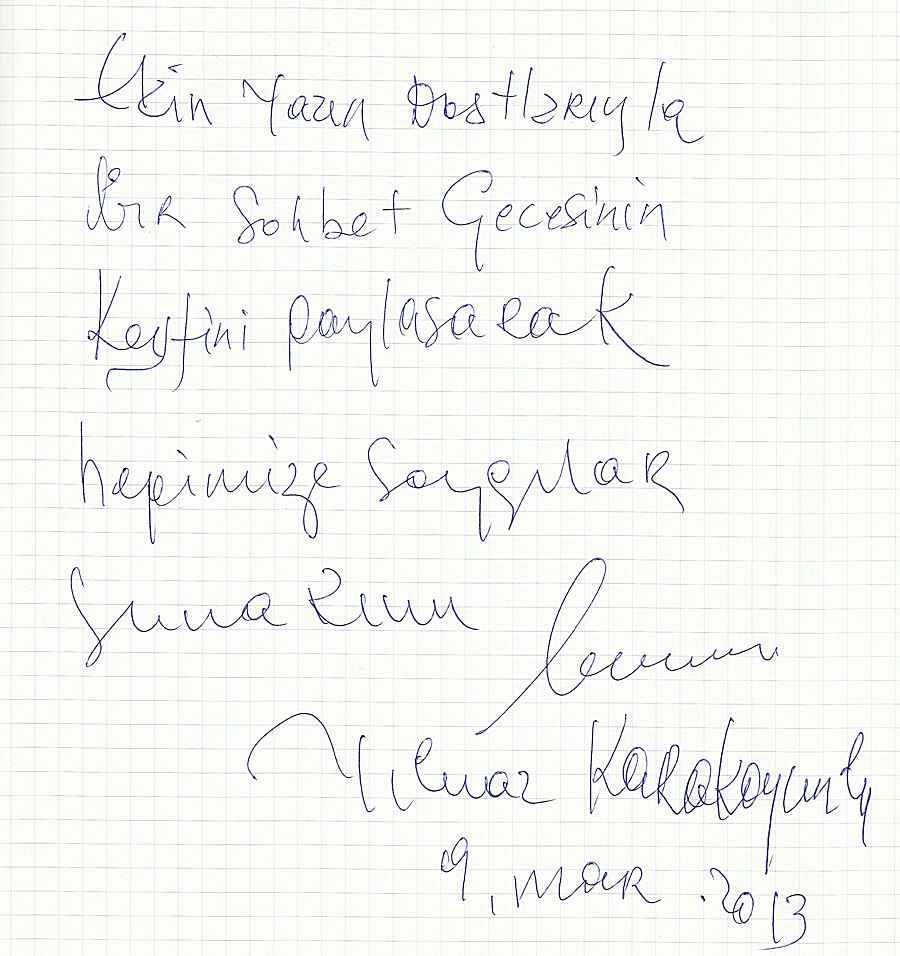 Ekin Yazın Dostlarıyla
Bir Sohbet Gecesinin
Keyfini paylaşarak
hepimize Saygılar
Sunarım
Yılmaz Karakoyunlu
9, mar. 2013